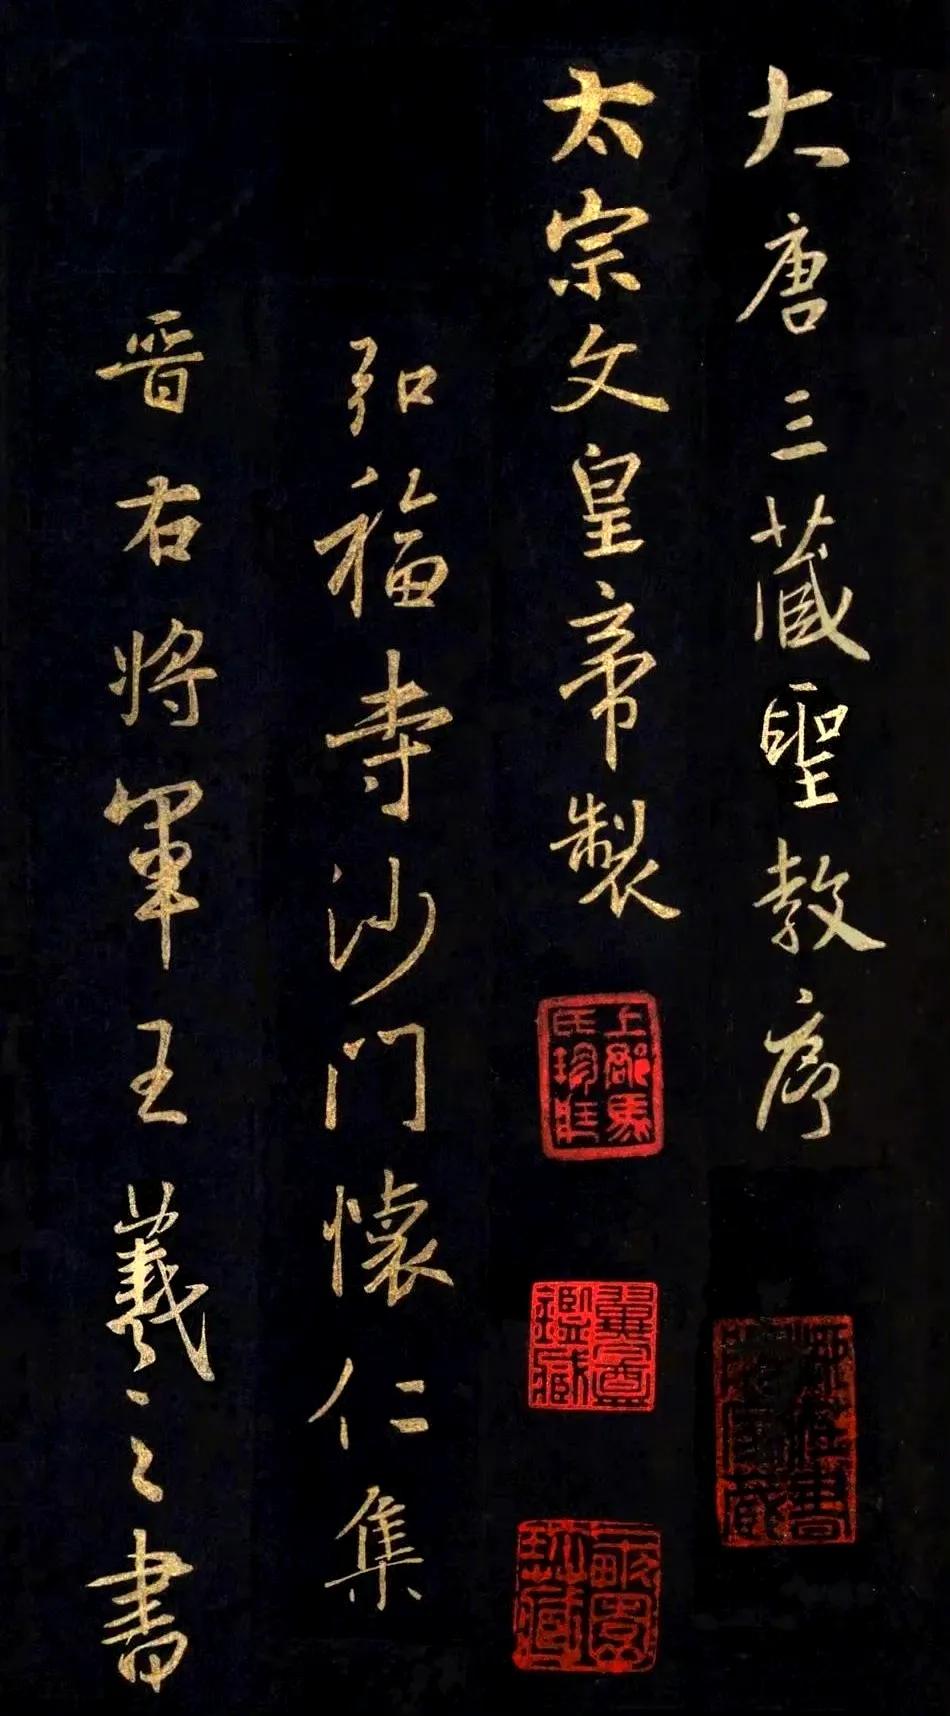 大唐三藏聖教序
太宗文皇帝製
弘福寺沙門懷仁集
晉右將軍王羲之書
上郡馬氏珍藏
翼盦鑑藏